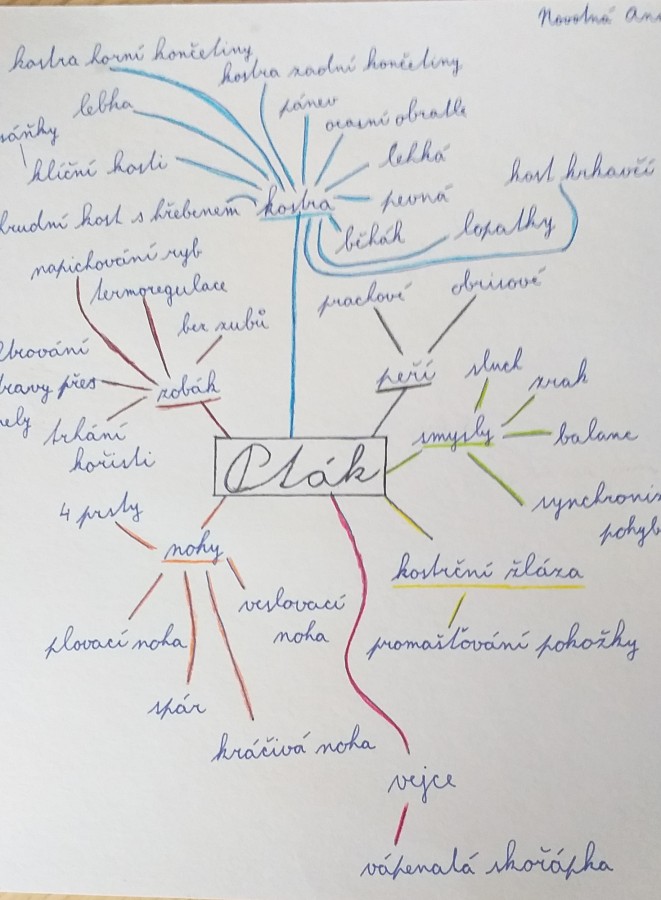 Novotná
kostra horní končetiny
kostra zadní končetiny
lebka
pánev
ocasní obratle
klíční kosti
lehká
kost krkavčí
hrudní kost s hřebenem
kostra
pevná
běhák
lopatky
napichování ryb
termoregulace
bez zubů
prachové
obrisové
přes
zobák
peří
sluch
zrak
trhání
kořisti
smysly
balanc
Pták
4 prsty
nohy
kostrční žláza
veslovací
noha
plovací noha
promašťování pokožky
spár
kráčivá noha
vejce
vápenatá skořápka